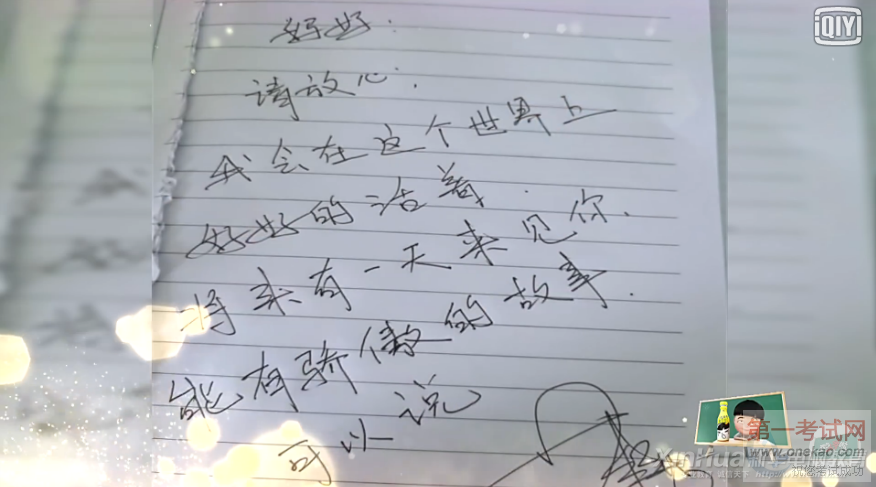 iQIYI
好好.
请放心.
我会在这个世界上
好好的活着.
将来有一天来见你.
能有骑傲的故事.
可以说
第一考试网
www.okaoyan.com
XinHua